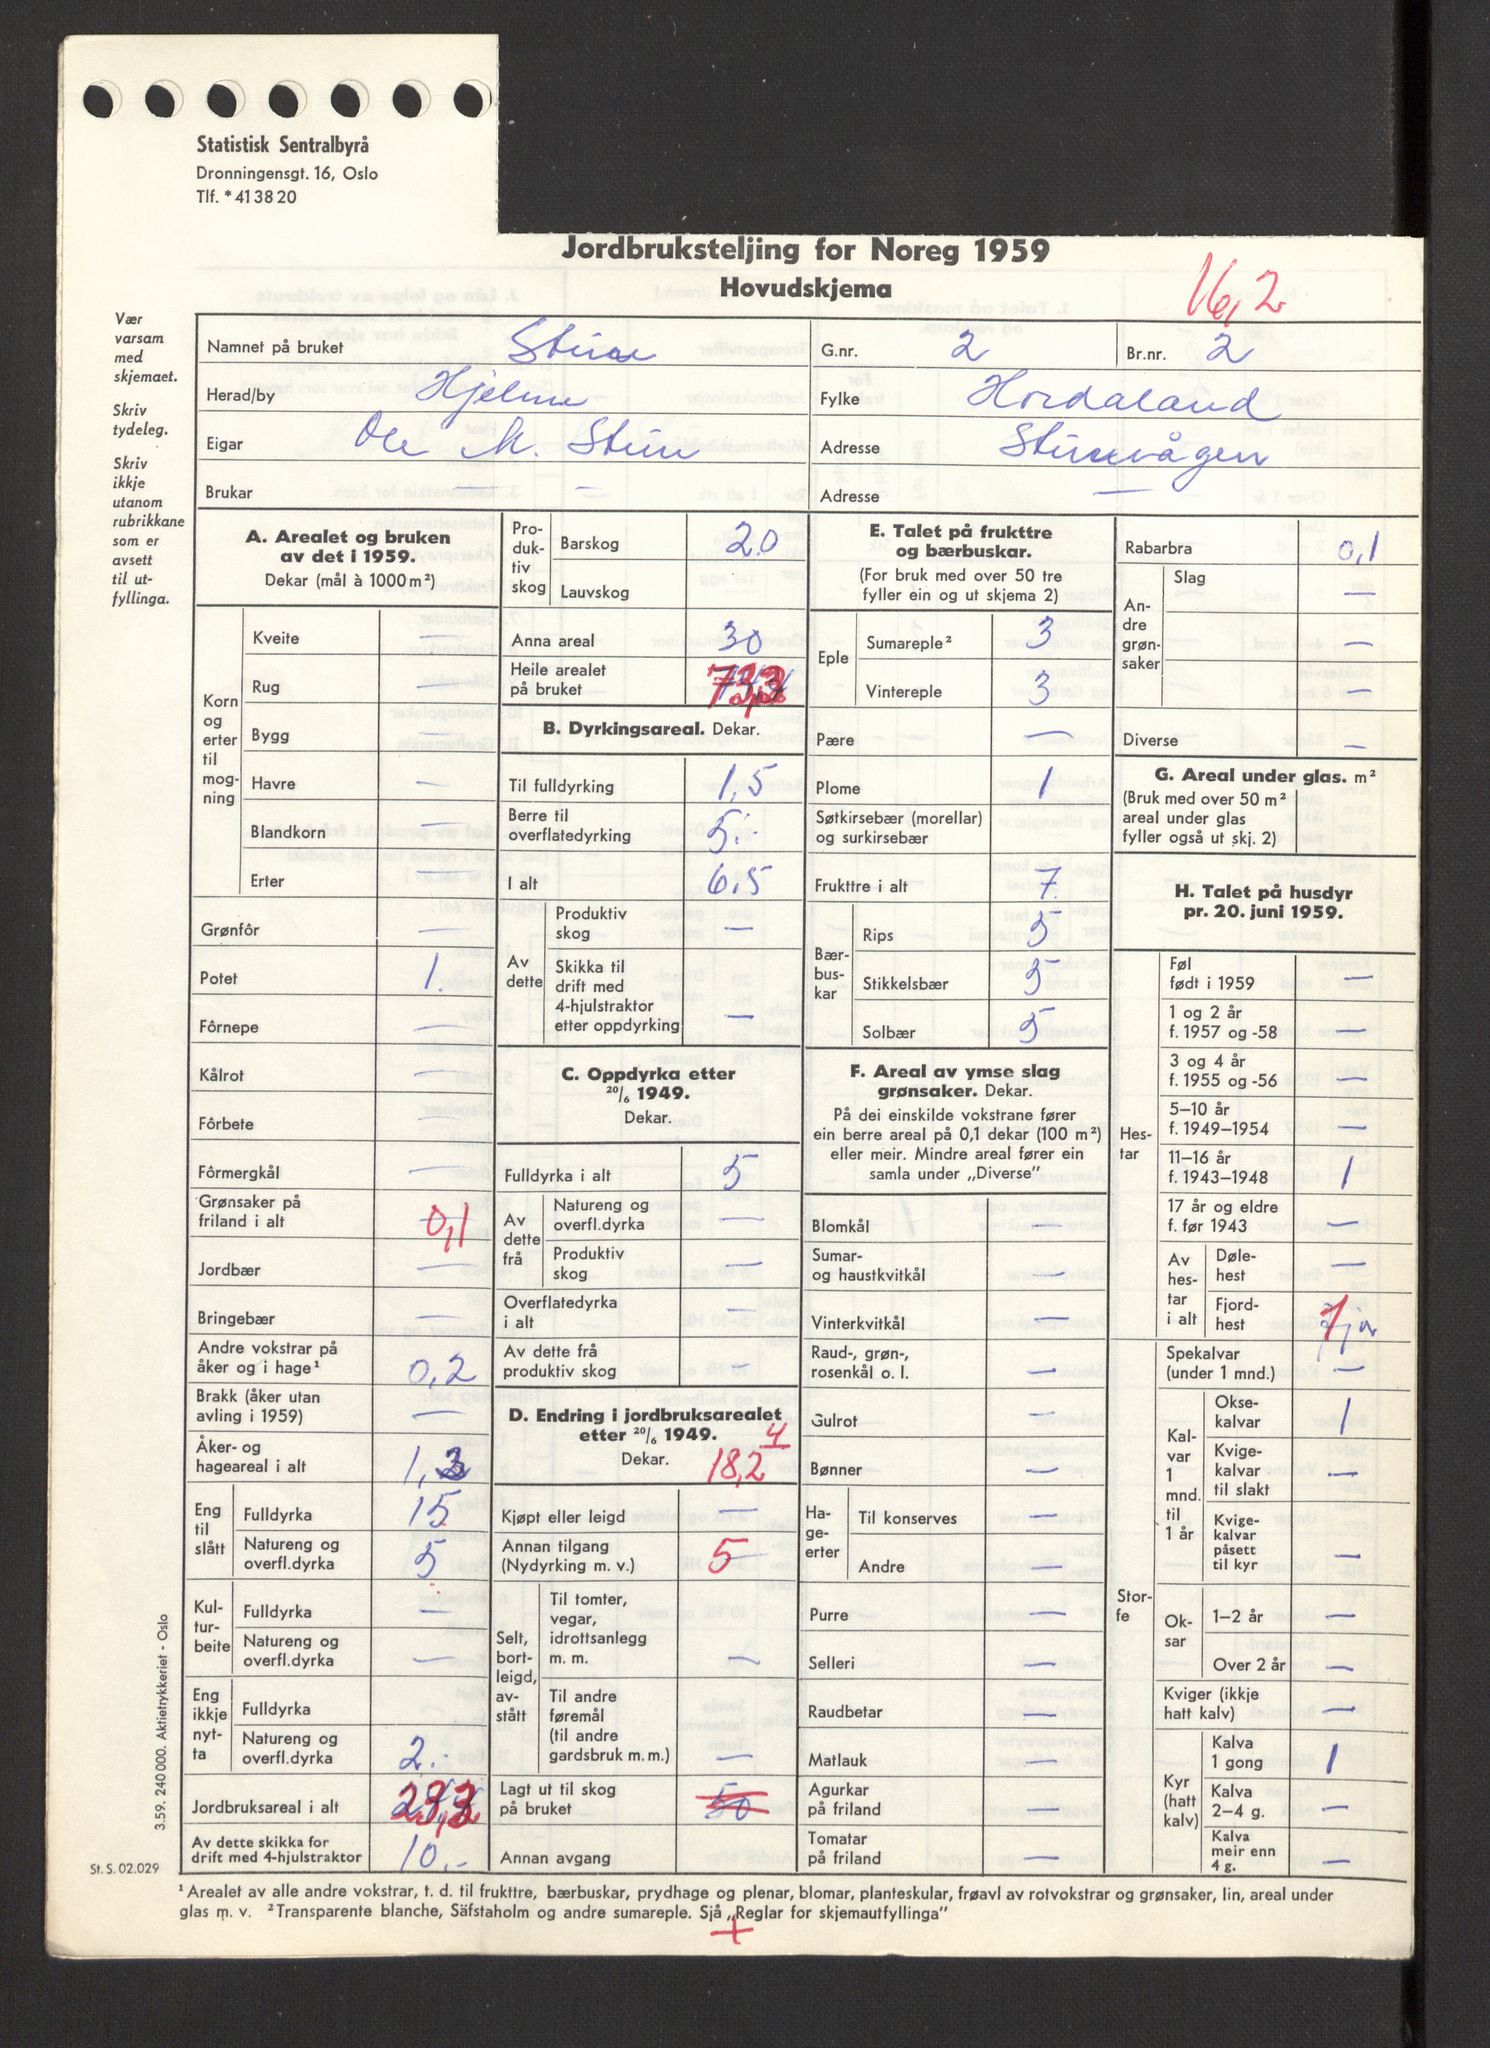 Statistisk Sentralbyrå
Dronningensgt. 16, Oslo
Tlf. *41 38 20
Jordbruksteljing for Noreg 1959
Hovudskjema
16,2
Vær
varsam
med
skjemaet.
Skriv
tydeleg.
Skriv
ikkje
utanom
rubrikkane
som er
avsett
til ut-
fyllinga.
Namnet på bruket Sture G.nr. 2 Br.nr. 2
Herad/by Hjelme Fylke Hordaland
Eigar Ole M. Sture Adresse Sturevågen
Brukar — — Adresse —
A. Arealet og bruken
av det i 1959.
Dekar (mål à 1000 m²)
Korn
og
erter
til
mog-
ning
Kveite —
Rug —
Bygg —
Havre —
Blandkorn —
Erter
Grønfôr —
Potet 1.
Fôrnepe —
Kålrot —
Fôrbete —
Fôrmergkål —
Grønsaker på
friland i alt 0,1
Jordbær —
Bringebær —
Andre vokstrar på
åker og i hage¹ 0,2
Brakk (åker utan
avling i 1959) —
Åker- og
hageareal i alt 1,3
Eng
til
slått
Fulldyrka 15
Natureng og
overfl.dyrka 5
Kul-
tur-
beite
Fulldyrka —
Natureng og
overfl.dyrka —
Eng
ikkje
nyt-
ta
Fulldyrka
Natureng og
overfl.dyrka 2.-
Jordbruksareal i alt 23,3
Av dette skikka for
drift med 4-hjulstraktor 10.-
Pro-
duk-
tiv
skog
Barskog 20
Lauvskog
Anna areal 30
Heile arealet
på bruket
B. Dyrkingsareal. Dekar.
Til fulldyrking 1,5
Berre til
overflatedyrking 5.-
I alt 6,5
Av
dette
Produktiv
skog —
Skikka til
drift med
4-hjulstraktor
etter oppdyrking —
C. Oppdyrka etter
20/6 1949.
Dekar.
Fulldyrka i alt 5
Av
dette
frå
Natureng og
overfl.dyrka —
Produktiv
skog —
Overflatedyrka
i alt —
Av dette frå
produktiv skog —
D. Endring i jordbruksarealet
etter 20/6 1949. 4
Dekar. 18,2
Kjøpt eller leigd —
Annan tilgang
(Nydyrking m. v.) 5
Selt,
bort-
leigd,
av-
stått
Til tomter,
vegar,
idrottsanlegg
m. m. —
Til andre
føremål
(til andre
gardsbruk m. m.) —
Lagt ut til skog
på bruket 50
Annan avgang
E. Talet på frukttre
og bærbuskar.
(For bruk med over 50 tre
fyller ein og ut skjema 2)
Eple
Sumareple² 3
Vintereple 3
Pære —
Plome 1
Søtkirsebær (morellar)
og surkirsebær
Frukttre i alt 7
Bær-
bus-
kar
Rips 5
Stikkelsbær 5
Solbær 5
F. Areal av ymse slag
grønsaker. Dekar.
På dei einskilde vokstrane fører
ein berre areal på 0,1 dekar (100 m²)
eller meir. Mindre areal fører ein
samla under „Diverse”
Blomkål —
Sumar-
og haustkvitkål —
Vinterkvitkål —
Raud-, grøn-,
rosenkål o. l. —
Gulrot —
Bønner —
Ha-
ge-
erter
Til konserves —
Andre —
Purre —
Selleri —
Raudbetar —
Matlauk —
Agurkar
på friland —
Tomatar
på friland —
Rabarbra 0,1
An-
dre
grøn-
saker
Slag —
—
—
Diverse —
G. Areal under glas. m²
(Bruk med over 50 m²
areal under glas
fyller også ut skj. 2)
H. Talet på husdyr
pr. 20. juni 1959.
Hes-
tar
Føl
født i 1959 —
1 og 2 år
f. 1957 og -58 —
3 og 4 år
f. 1955 og -56 —
5–10 år
f. 1949–1954 —
11–16 år
f. 1943–1948 1
17 år og eldre
f. før 1943 —
Av
hes-
tar
i alt
Døle-
hest —
Fjord-
hest 1
Stor-
fe
Spekalvar
(under 1 mnd.) —
Kal-
var
1
mnd.
til
1 år
Okse-
kalvar 1
Kvige-
kalvar
til slakt —
Kvige-
kalvar
påsett
til kyr —
Ok-
sar
1–2 år —
Over 2 år —
Kviger (ikkje
hatt kalv) —
Kyr
(hatt
kalv)
Kalva
1 gong 1
Kalva
2–4 g. —
Kalva
meir enn
4 g. —
3.59. 240 000. Aktietrykkeriet - Oslo
St. S. 02.029
¹ Arealet av alle andre vokstrar, t. d. til frukttre, bærbuskar, prydhage og plenar, blomar, planteskular, frøavl av rotvokstrar og grønsaker, lin, areal under
glas m. v. ² Transparente blanche, Säfstaholm og andre sumareple. Sjå „Reglar for skjemautfyllinga”
+